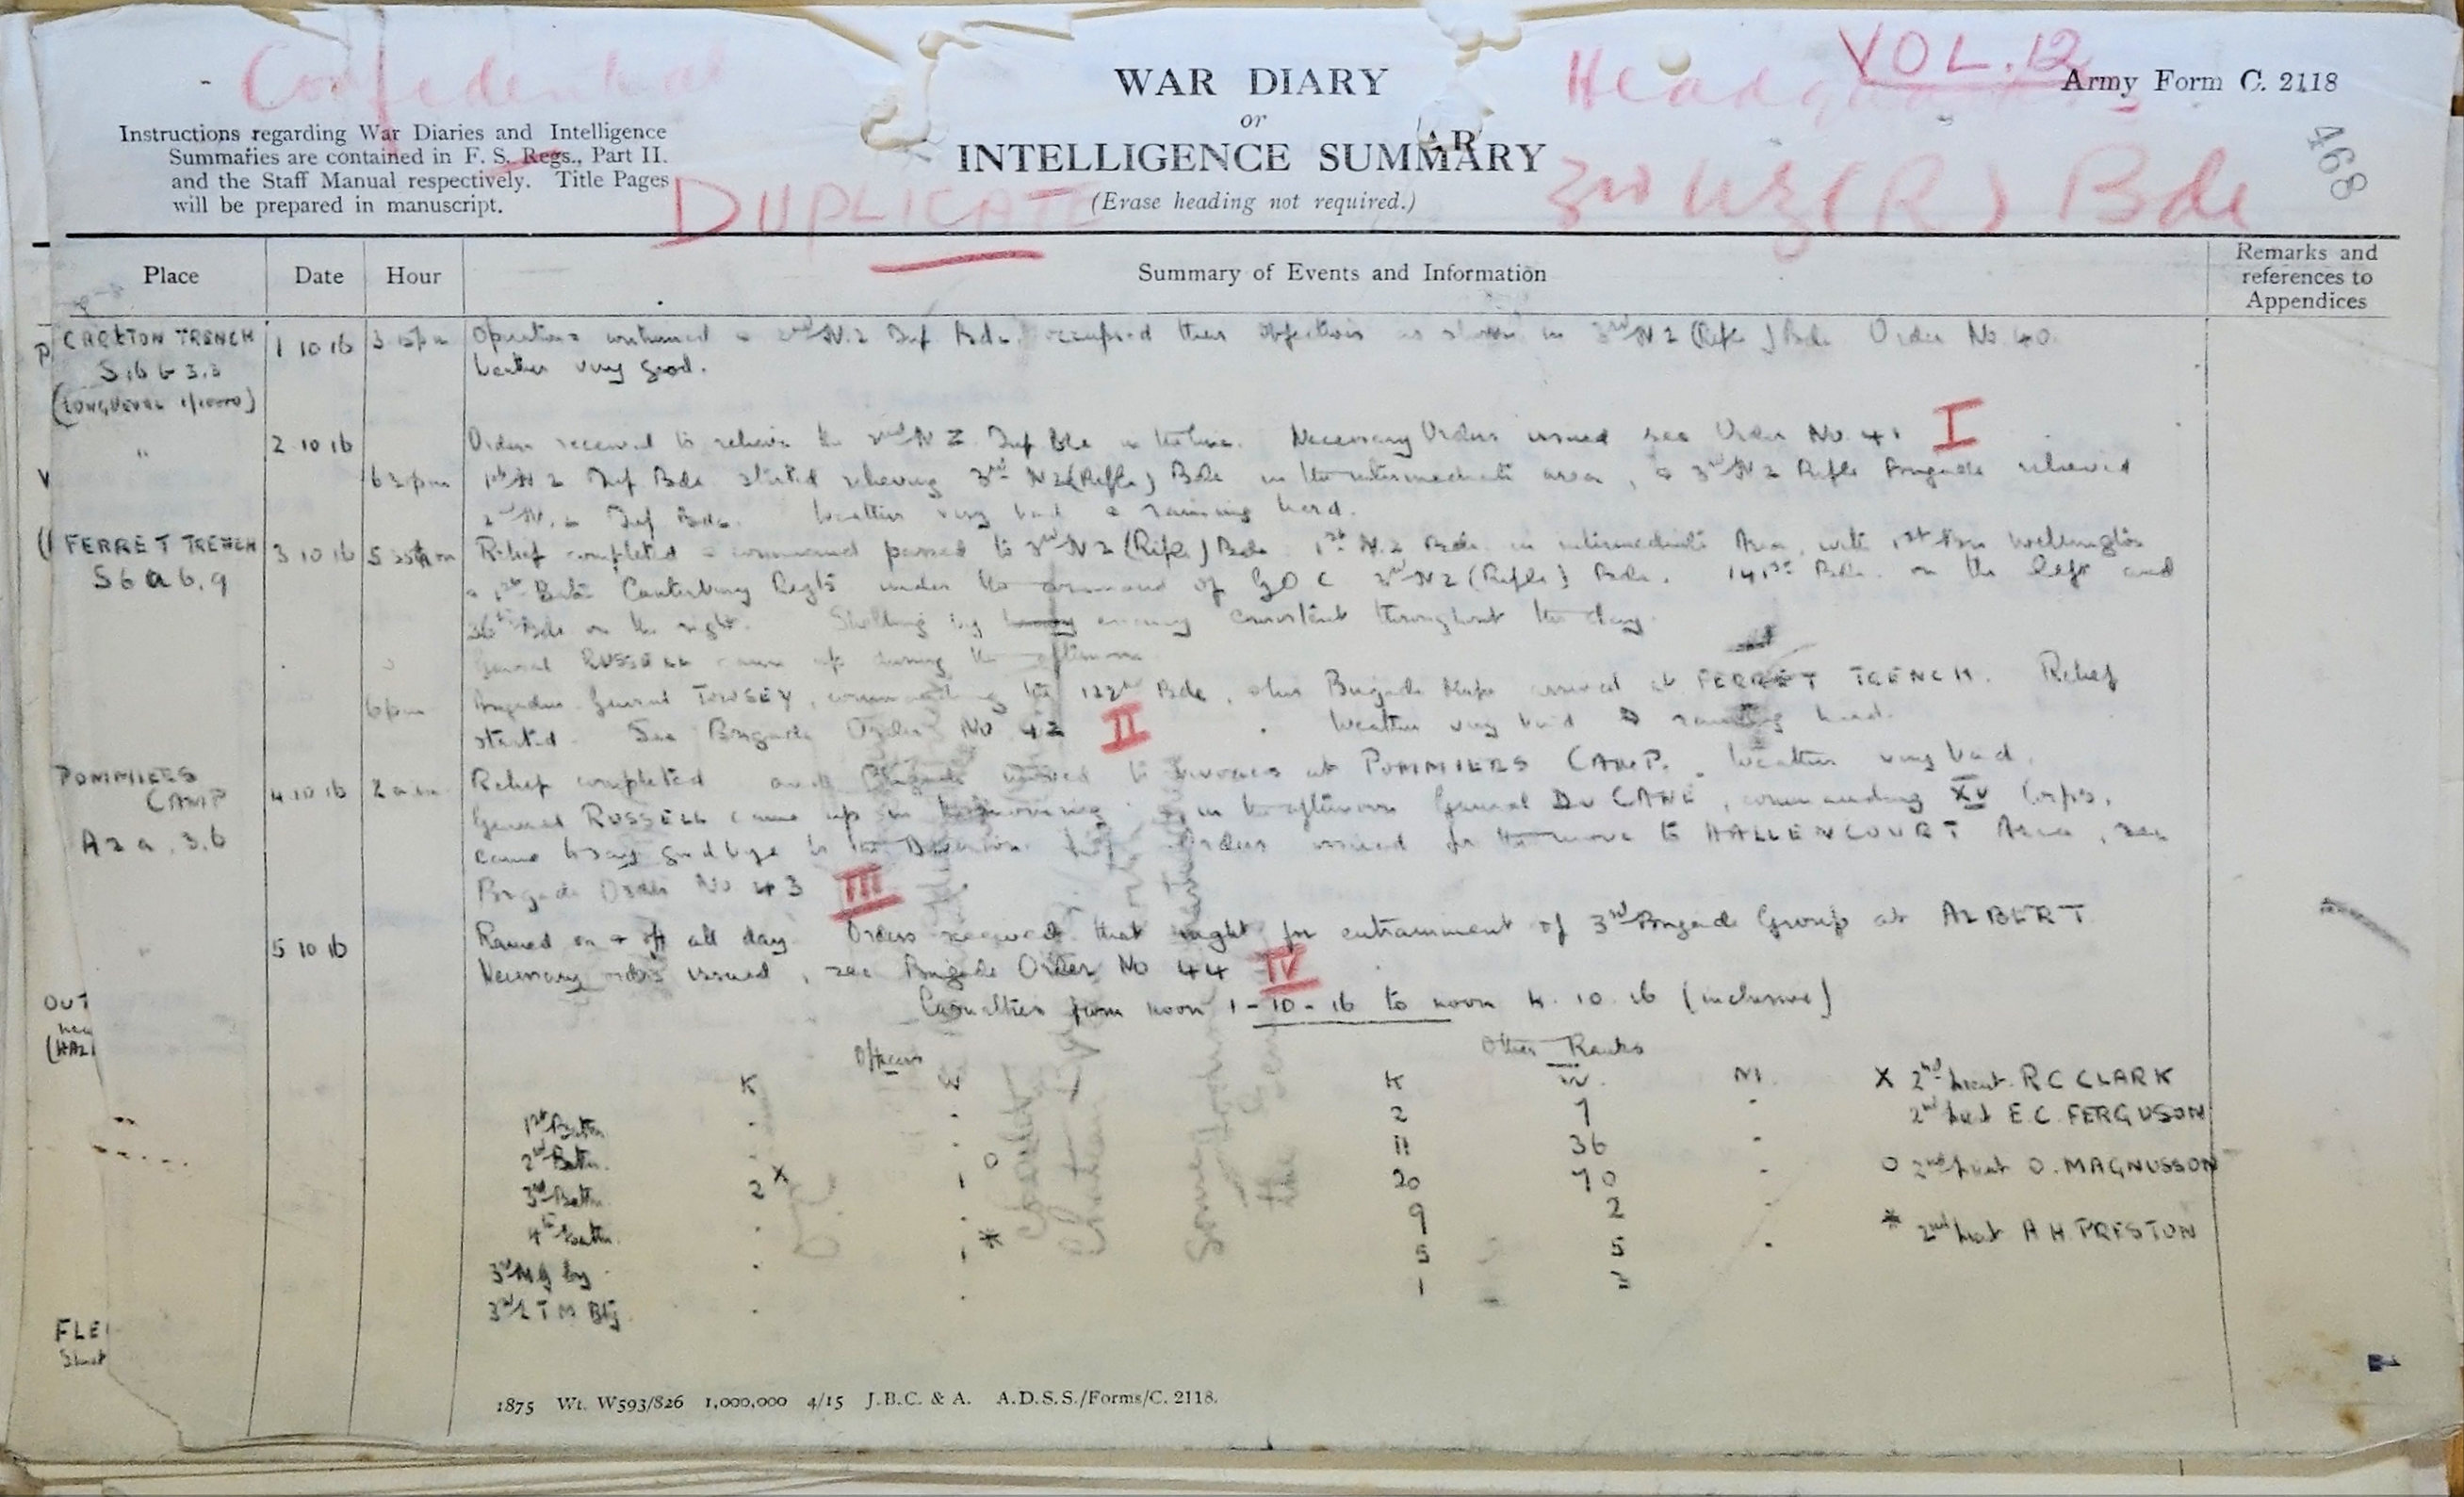 Confidential
VOL. 12
WAR DIARY
or
INTELLIGENCE SUMMARY
(Erase heading not required.)
Army Form C. 2118
Headquarters
3rd NZ (R) Bde
468
Instructions regarding War Diaries and Intelligence
Summaries are contained in F. S. Regs., Part II.
and the Staff Manual respectively. Title Pages
will be prepared in manuscript.
DUPLICATE
Place Date Hour Summary of Events and Information Remarks and references to Appendices
CARLTON TRENCH 1 10 16 Operations continued & 2nd N.Z Inf Bde. occupied their objectives as shown in 3rd N Z (Rifle) Bde Order No 40.
S.16 b 3.3 Weather very good.
(LONGUEVAL 1/10000)
" 2 10 16 Orders received to relieve the 2nd N Z Inf Bde in the line. Necessary Orders issued see Order No. 41 I
1st N Z Inf Bde started relieving 3rd NZ (Rifle) Bde in the intermediate area, & 3rd N Z Rifle Brigade relieved
2nd N.Z Inf Bde. Weather very bad & raining hard.
FERRET TRENCH 3 10 16 Relief completed & command passed to 3rd N Z (Rifle) Bde. 1st N.Z Bde. in intermediate Area, with 1st Bn Wellington
S6 a 6.9 & 1st Battn Canterbury Regt under the command of G O C 3rd N Z (Rifle) Bde. 141st Bde. on the left and
36th Bde on the right. Shelling by enemy consistent throughout the day.
General RUSSELL came up during the afternoon
6pm Brigadier General TOWSEY, commanding the 122nd Bde, & his Brigade Major arrived at FERRET TRENCH. Relief
started. See Brigade Order No 42 II Weather very bad & raining hard.
POMMIERS CAMP 4 10 16 2 a.m. Relief completed and Brigade moved to bivouacs at POMMIERS CAMP. Weather very bad.
A 2 a. 3.6 General RUSSELL came up in the morning & in the afternoon General Du CANE, commanding XV Corps,
came to say goodbye to the Division. Orders issued for the move to HALLENCOURT Area, see
Brigade Order No 43 III
" 5 10 16 Rained on & off all day. Orders received that night for entrainment of 3rd Brigade Group at ALBERT
Necessary orders issued, see Brigade Order No 44 IV
Casualties from noon 1-10-16 to noon 4.10.16 (inclusive)
Officers Other Ranks
K W K W. M.
1st Battn - - 2 7 -
2nd Battn. - - 11 36 -
3rd Battn. 2 X 1 O 20 70 -
4th Battn. - - 9 2 -
3rd M G Coy - 1 * 5 5 -
3rd L T M Bty. - - 1 3
X 2nd Lieut. R C CLARK
2nd Lieut E C. FERGUSON
O 2nd Lieut O. MAGNUSSON
* 2nd Lieut A H. PRESTON
OUT
(HAL
FLE
Sheet
1875 Wt. W593/826 1,000,000 4/15 J.B.C. & A. A.D.S.S./Forms/C. 2118.